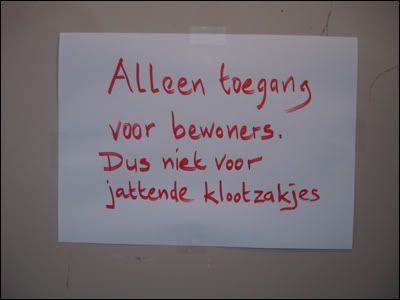 Alleen toegang
voor bewoners.
Dus niet voor
jattende klootzakjes